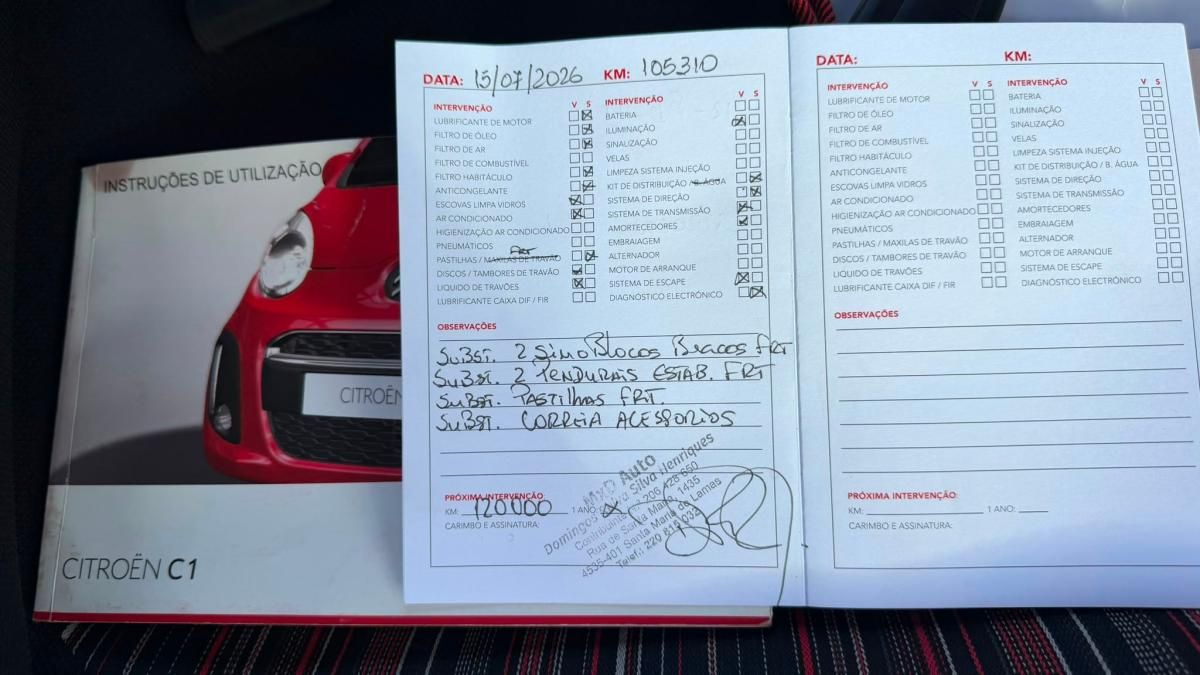 INSTRUÇÕES DE UTILIZAÇÃO
CITROËN
CITROËN C1
DATA: 15/07/2026 KM: 105310
INTERVENÇÃO V S
LUBRIFICANTE DE MOTOR
FILTRO DE ÓLEO
FILTRO DE AR
FILTRO DE COMBUSTÍVEL
FILTRO HABITÁCULO
ANTICONGELANTE
ESCOVAS LIMPA VIDROS
AR CONDICIONADO
HIGIENIZAÇÃO AR CONDICIONADO
PNEUMÁTICOS
FRT
PASTILHAS / MAXILAS DE TRAVÃO
DISCOS / TAMBORES DE TRAVÃO
LIQUIDO DE TRAVÕES
LUBRIFICANTE CAIXA DIF / FIR
INTERVENÇÃO V S
BATERIA
ILUMINAÇÃO
SINALIZAÇÃO
VELAS
LIMPEZA SISTEMA INJEÇÃO
KIT DE DISTRIBUIÇÃO / B. ÁGUA
SISTEMA DE DIREÇÃO
SISTEMA DE TRANSMISSÃO
AMORTECEDORES
EMBRAIAGEM
ALTERNADOR
MOTOR DE ARRANQUE
SISTEMA DE ESCAPE
DIAGNÓSTICO ELECTRÓNICO
OBSERVAÇÕES
SUBST. 2 SINOBLOCOS BRACOS FRT
SUBST. 2 PENDURAIS ESTAB. FRT
SUBST. PASTILHAS FRT.
SUBST. CORREIA ACESSORIOS
PRÓXIMA INTERVENÇÃO:
KM: 120000 1 ANO: X
CARIMBO E ASSINATURA:
MxD Auto
Domingos Silva Henriques
Contribuinte nº 206 428 660
Rue de Santa Maria, 1435
4535-401 Santa Maria de Lamas
Telef.: 220 815 032
DATA: KM:
INTERVENÇÃO V S
LUBRIFICANTE DE MOTOR
FILTRO DE ÓLEO
FILTRO DE AR
FILTRO DE COMBUSTÍVEL
FILTRO HABITÁCULO
ANTICONGELANTE
ESCOVAS LIMPA VIDROS
AR CONDICIONADO
HIGIENIZAÇÃO AR CONDICIONADO
PNEUMÁTICOS
PASTILHAS / MAXILAS DE TRAVÃO
DISCOS / TAMBORES DE TRAVÃO
LIQUIDO DE TRAVÕES
LUBRIFICANTE CAIXA DIF / FIR
INTERVENÇÃO V S
BATERIA
ILUMINAÇÃO
SINALIZAÇÃO
VELAS
LIMPEZA SISTEMA INJEÇÃO
KIT DE DISTRIBUIÇÃO / B. ÁGUA
SISTEMA DE DIREÇÃO
SISTEMA DE TRANSMISSÃO
AMORTECEDORES
EMBRAIAGEM
ALTERNADOR
MOTOR DE ARRANQUE
SISTEMA DE ESCAPE
DIAGNÓSTICO ELECTRÓNICO
OBSERVAÇÕES
PRÓXIMA INTERVENÇÃO:
KM: 1 ANO:
CARIMBO E ASSINATURA: